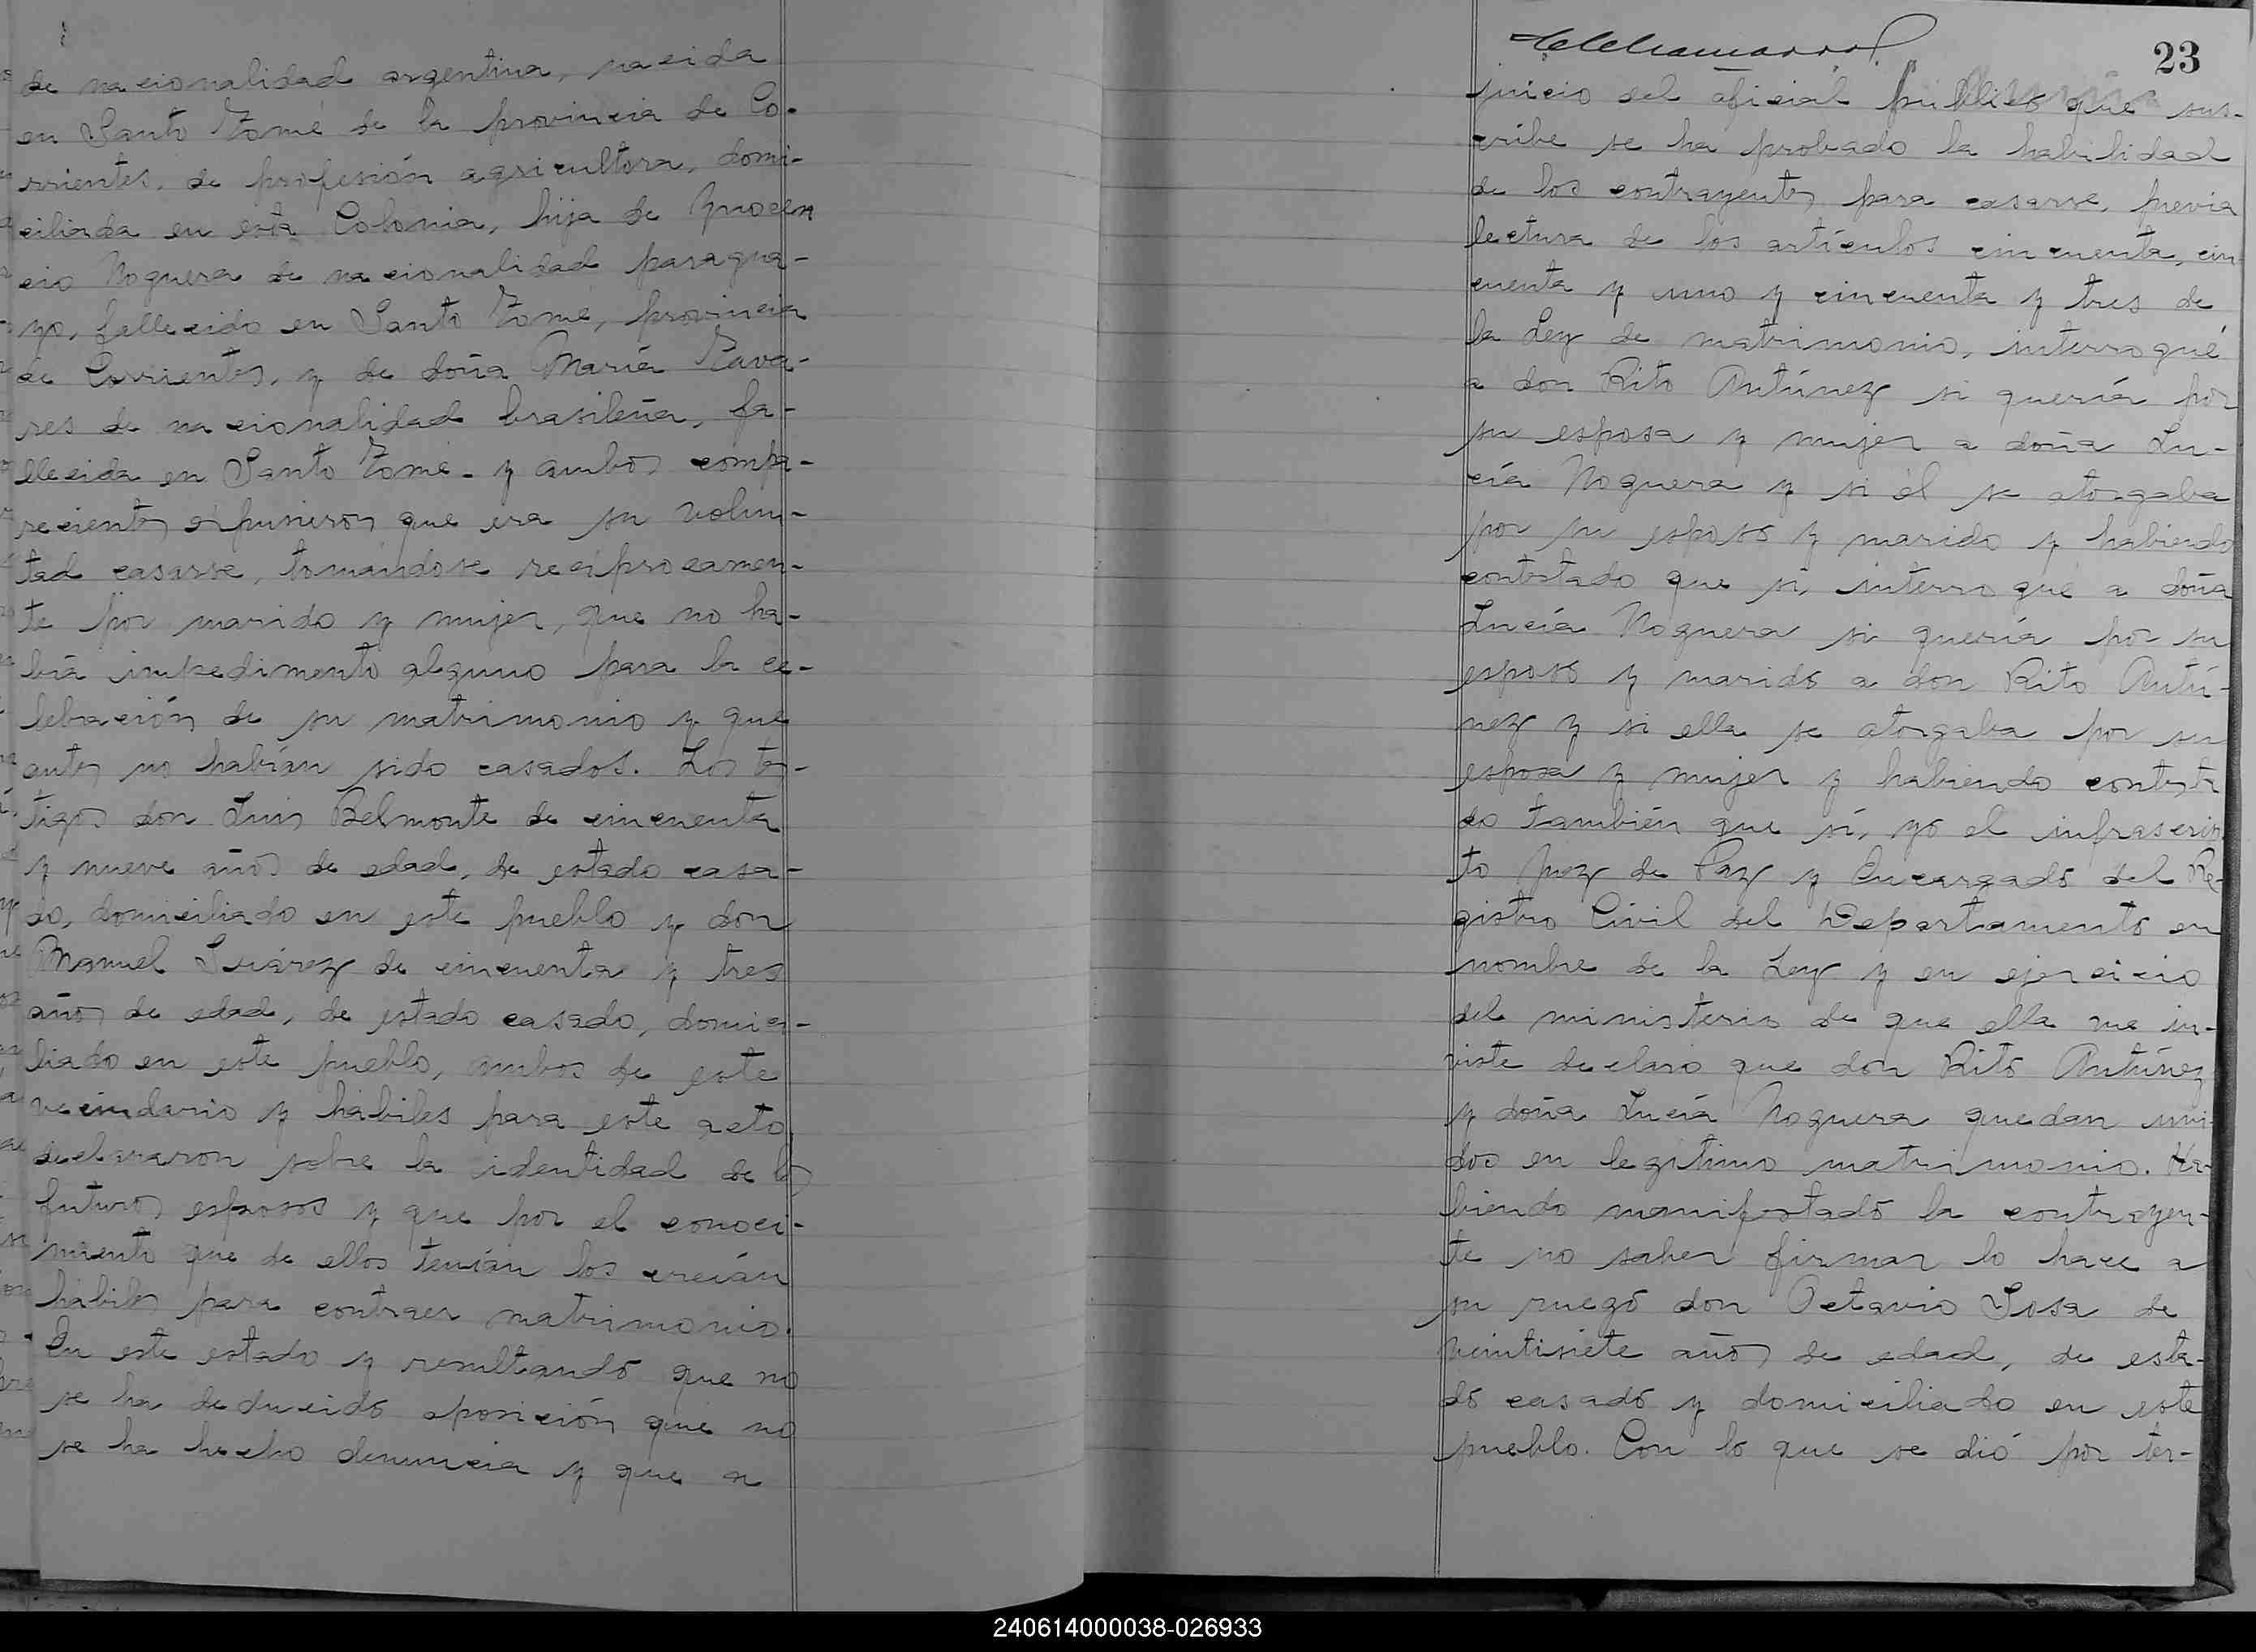 de nacionalidad argentina, nacida
en Santo Tomé de la provincia de Co-
rrientes, de profesión agricultora, domi-
ciliada en esta Colonia, hija de Ynocen
cio Noguera de nacionalidad paragua-
yo, fallecido en Santo Tomé, provincia
de Corrientes, y de doña María Tava-
res de nacionalidad brasileña, fa-
llecida en Santo Tomé - y ambos compa-
recientes expusieron que era su volun-
tad casarse, tomándose recíprocamen-
te por marido y mujer, que no ha-
bía impedimento alguno para la ce-
lebración de su matrimonio y que
antes no habían sido casados. Los tes-
tigos don Luis Belmonte de cincuenta
y nueve años de edad, de estado casa-
do, domiciliado en este pueblo y don
Manuel Suárez de cincuenta y tres
años de edad, de estado casado, domici-
liado en este pueblo, ambos de este
vecindario y hábiles para este acto,
declararon sobre la identidad de los
futuros esposos y que por el conoci-
miento que de ellos tenían los creían
hábiles para contraer matrimonio.
En este estado y resultando que no
se ha deducido oposición que no
se ha hecho denuncia y que a
23
juicio del oficial público que sus-
cribe se ha probado la habilidad
de los contrayentes para casarse, previa
lectura de los artículos cincuenta, cin
cuenta y uno y cincuenta y tres de
la Ley de matrimonio, interrogué
a don Rito Antúnez si quería por
su esposa y mujer a doña Lu-
cía Noguera y si él se otorgaba
por su esposo y marido y habiendo
contestado que sí, interrogué a doña
Lucía Noguera si quería por su
esposo y marido a don Rito Antú-
nez y si ella se otorgaba por su
esposa y mujer y habiendo contesta
do también que sí, yo el infrascrip
to Juez de Paz y Encargado del Re-
gistro Civil del Departamento en
nombre de la Ley y en ejercicio
del ministerio de que ella me in-
viste declaro que don Rito Antúnez
y doña Lucía Noguera quedan uni-
dos en legítimo matrimonio. Ha-
biendo manifestado la contrayen-
te no saber firmar lo hace a
su ruego don Octavio Sosa de
veintisiete años de edad, de esta-
do casado y domiciliado en este
pueblo. Con lo que se dió por ter-
240614000038-026933